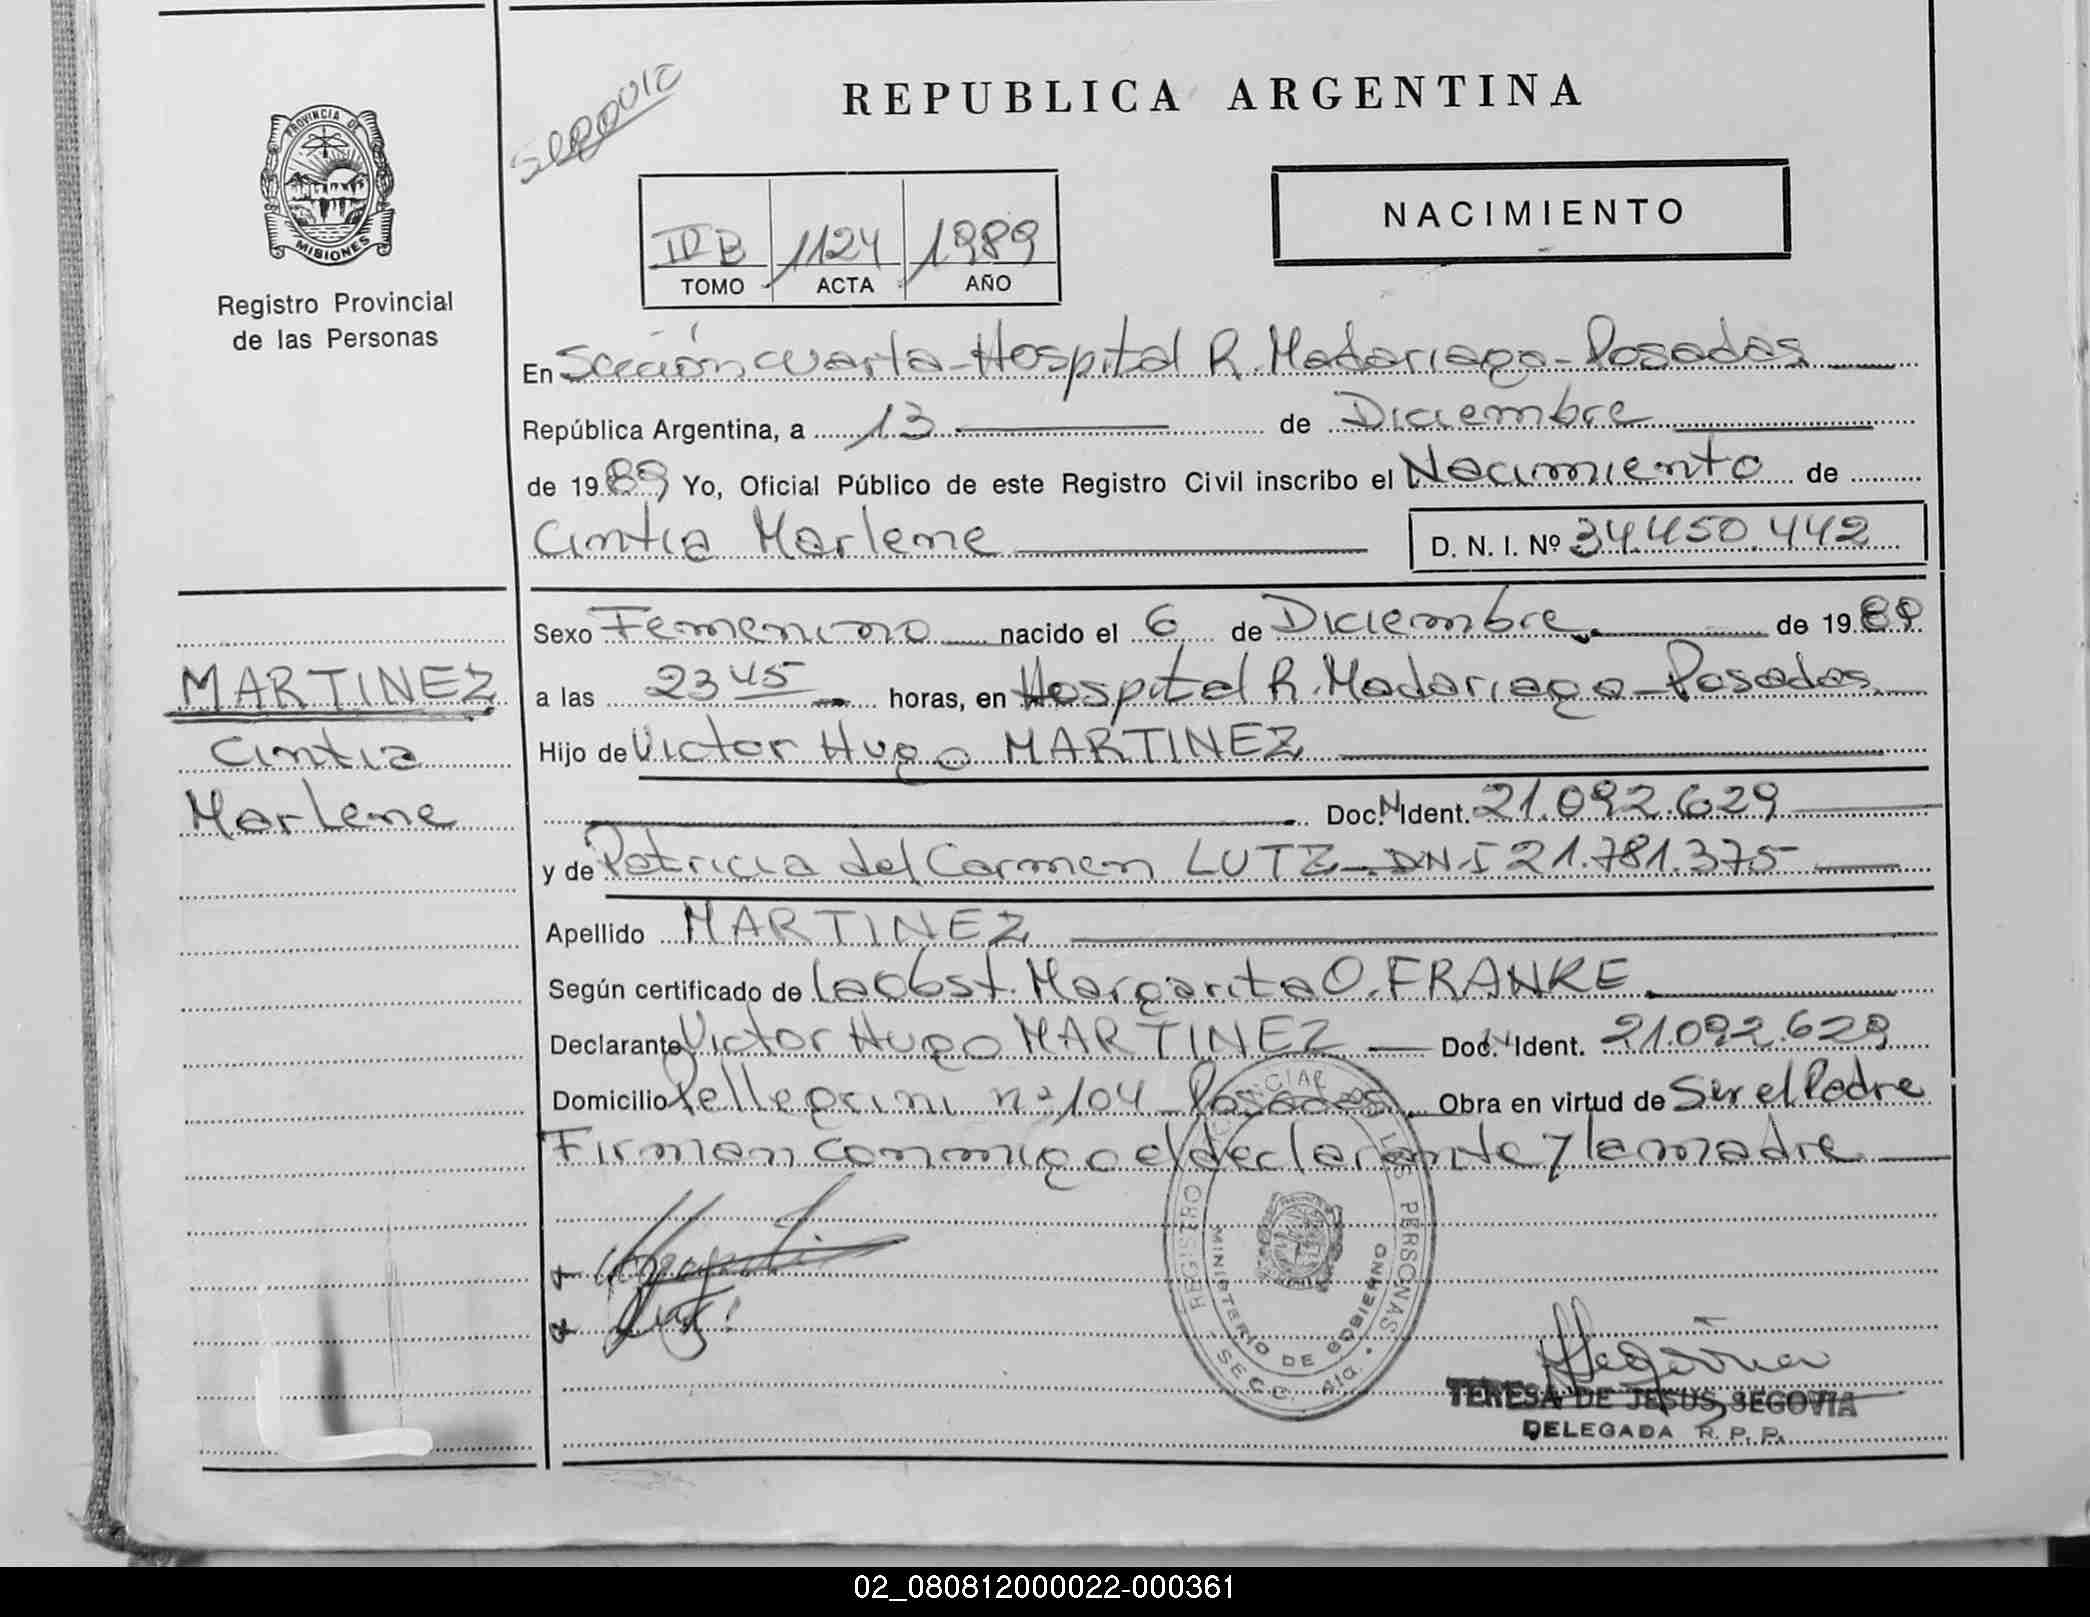 REPUBLICA ARGENTINA
PROVINCIA DE
MISIONES
Registro Provincial
de las Personas
NACIMIENTO
1124 1989
TOMO ACTA AÑO
En Sección cuarta-Hospital R. Madariaga-Posadas
República Argentina, a 13 de Diciembre
de 1989 Yo, Oficial Público de este Registro Civil inscribo el Nacimiento de
Cintia Marlene D. N. I. Nº 34.450.442
Sexo Femenino nacido el 6 de Diciembre de 1989
a las 23 45 horas, en Hospital R. Madariaga-Posadas
Hijo de Victor Hugo MARTINEZ
Doc. N Ident. 21.092.629
y de Patricia del Carmen LUTZ-DNI 21.781.375
Apellido MARTINEZ
Según certificado de la Obst. Margarita O. FRANKE
Declarante Victor Hugo MARTINEZ Doc. N Ident. 21.092.629
Domicilio Pellegrini nº 104 Posadas Obra en virtud de Ser el Padre
Firman conmigo el declarante y la madre
MARTINEZ
Cintia
Marlene
REGISTRO PROVINCIAL DE LAS PERSONAS
MINISTERIO DE GOBIERNO
SECC. 4ta.
TERESA DE JESUS SEGOVIA
DELEGADA R. P. P.
02_080812000022-000361